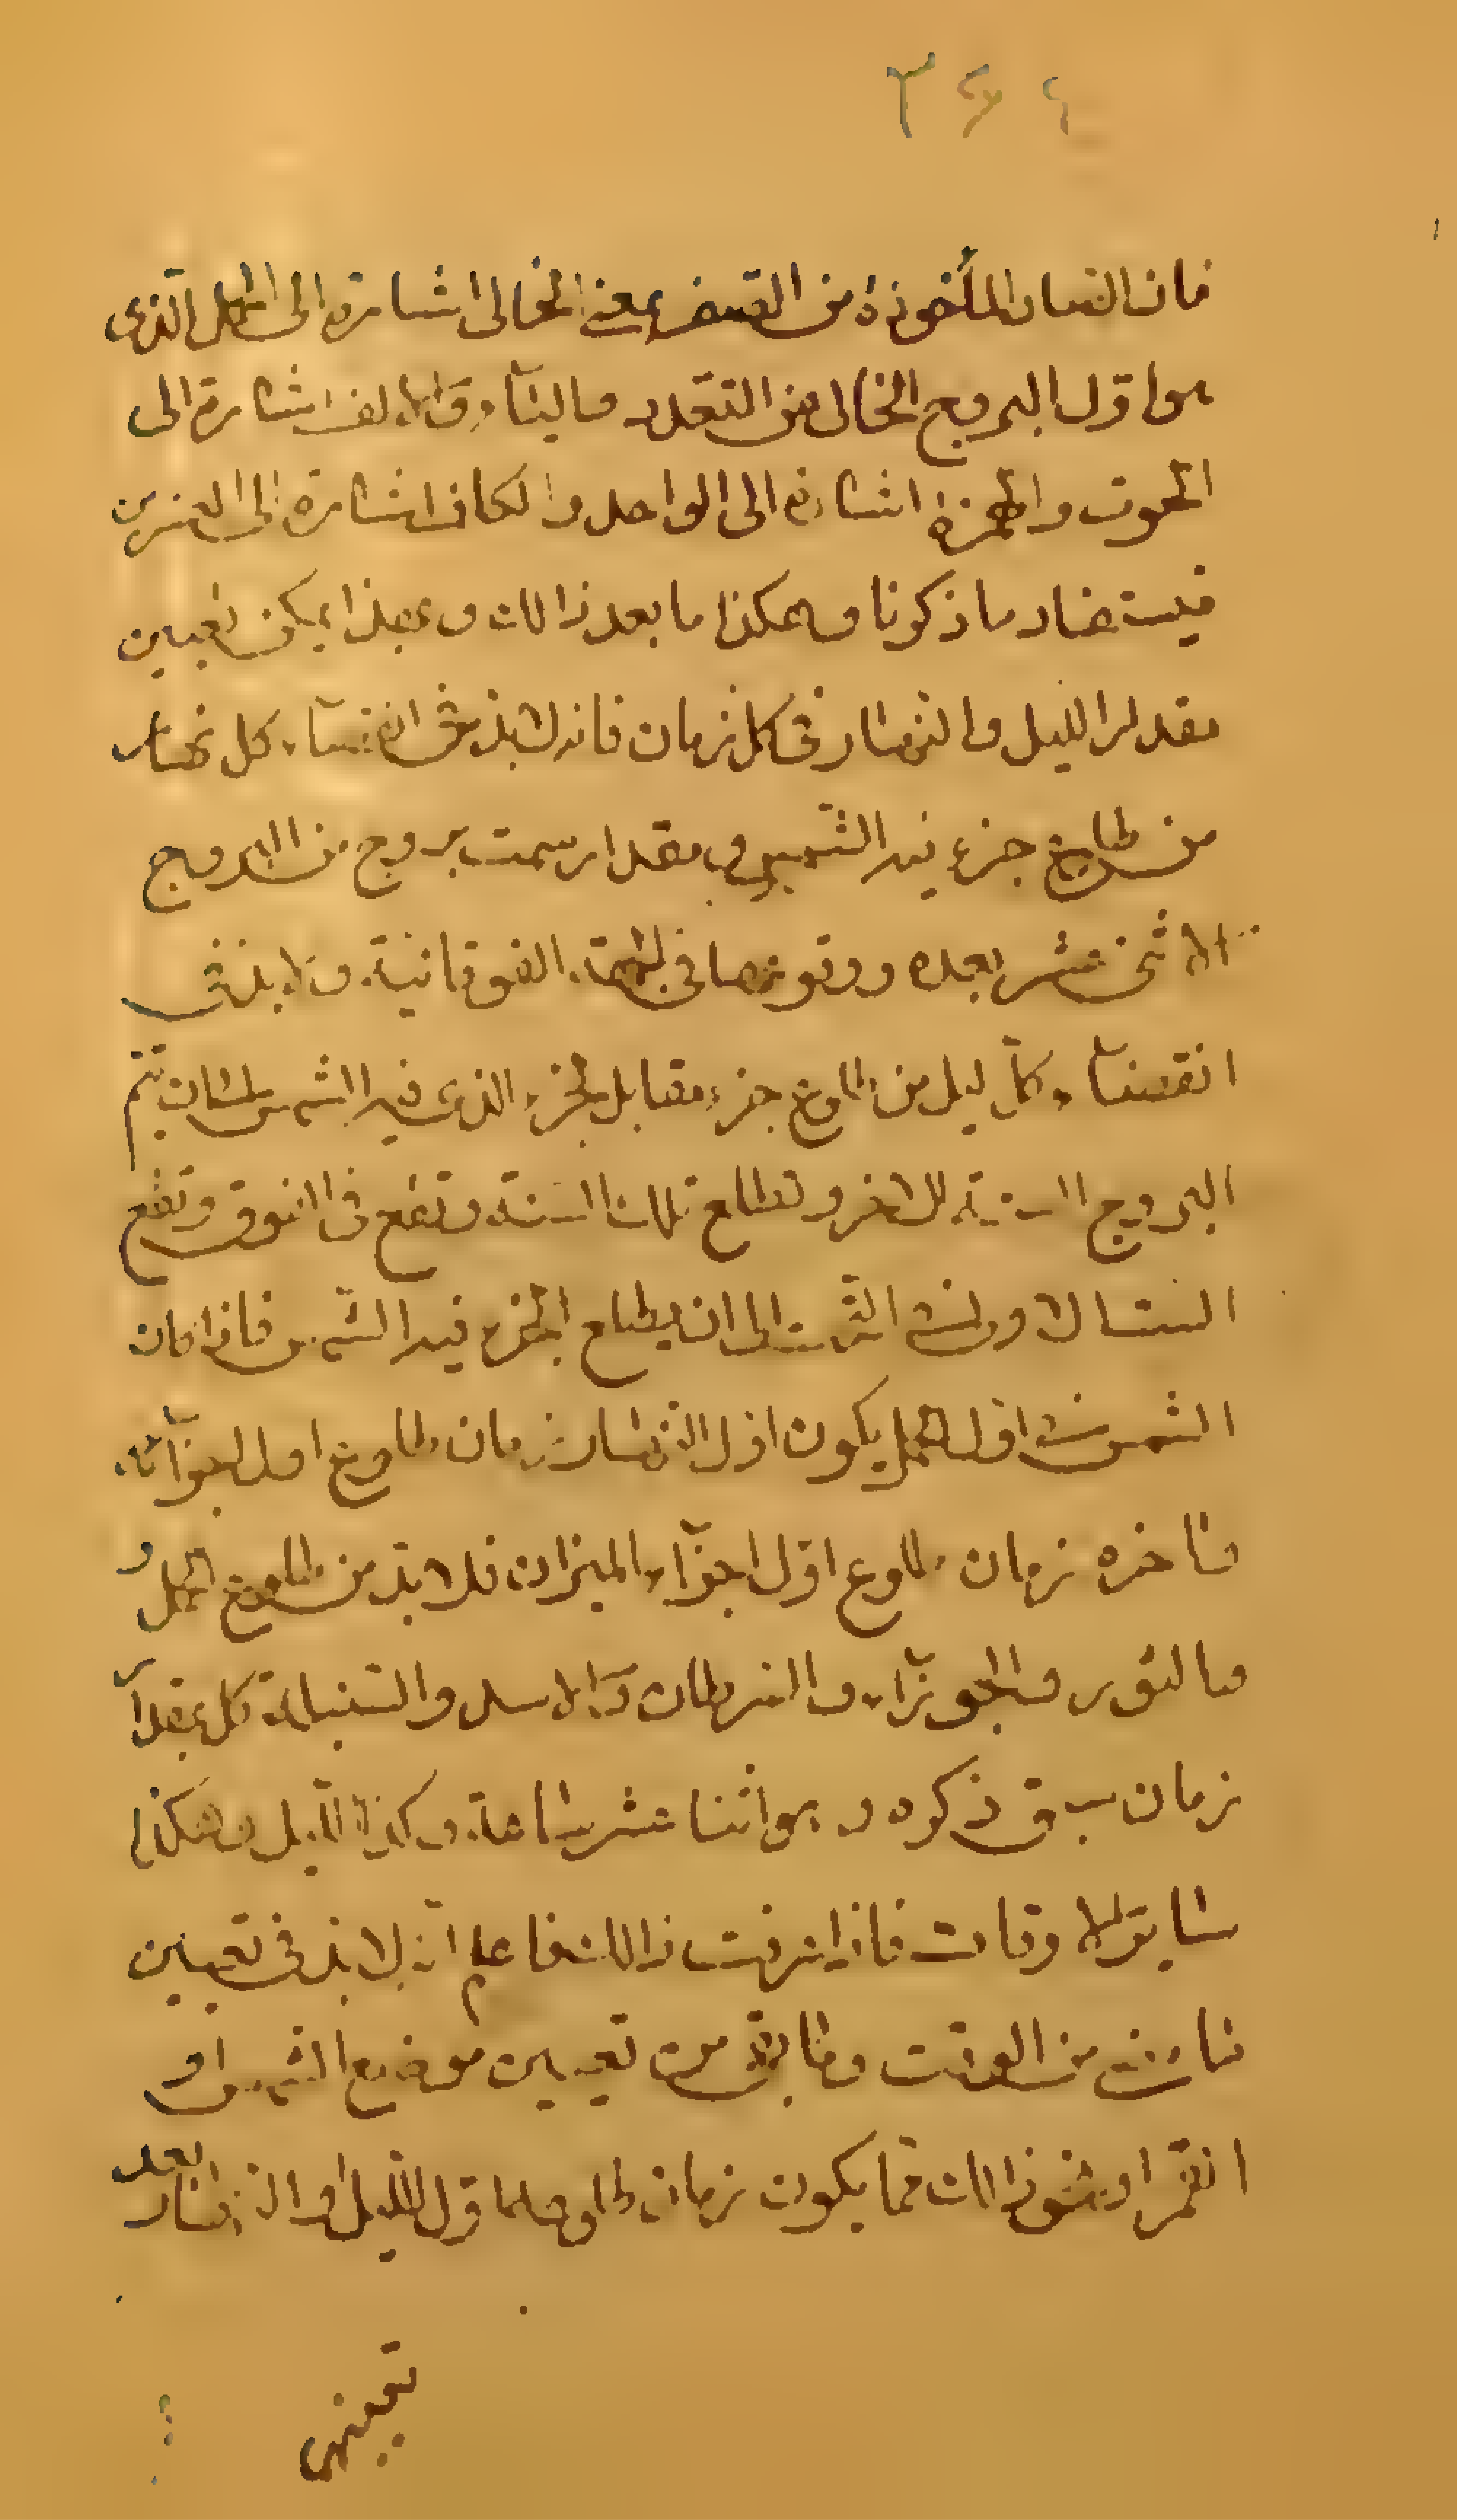 فان الصاد المأخوذة من الصفر بمعنى الخالى اشارة الى الحمل الذى
هو اول البروج الخالى من التعدد والياء والالف اشارة الى
الحوت والهمزة اشارة الى الواحد والكاف اشارة الى العشرين
فيستفاد ما ذكرنا وهكذا ما بعد ذالك وبهذا يمكن تعيين
مقدار الليل والنهار فى كل زمان فانه لابد فى انقضاء كل نهار
من طلوع جزء فيه الشمس ومقدار ست بروج من البروج
الاثنى عشر بعده ووقوعها فى الجهة الفوقانية ولابد فى
انقضاء كل ليل من طلوع جزء مقابل للجزء الذى فيه الشمس بان تتم
البروج الستة الاخر وتطلع تلك الستة وتقع فى الفوق وتقع
الى ان يطلع الجزء فيه الشمس فاذا كان
الشمس فى اول الحمل يكون اول النهار زمان طلوع اول اجزائه
واخره زمان طلوع اول اجزاء الميزان فلابد من طلوع الحمل و
والثور والجوزاء والسرطان والاسد والسنبلة كل بمقدار
زمان سبق ذكره وهو اثنا عشر ساعة وكذا الليل وهكذا
سائر الاوقات فاذا عرفت ذالك فاعلم انه لابد فى تعيين
ما من الوقت من تعيين موضع الشمس او
القمر او نحو ذالك مما يكون زمان طلوعها اول الليل او النهار بعد